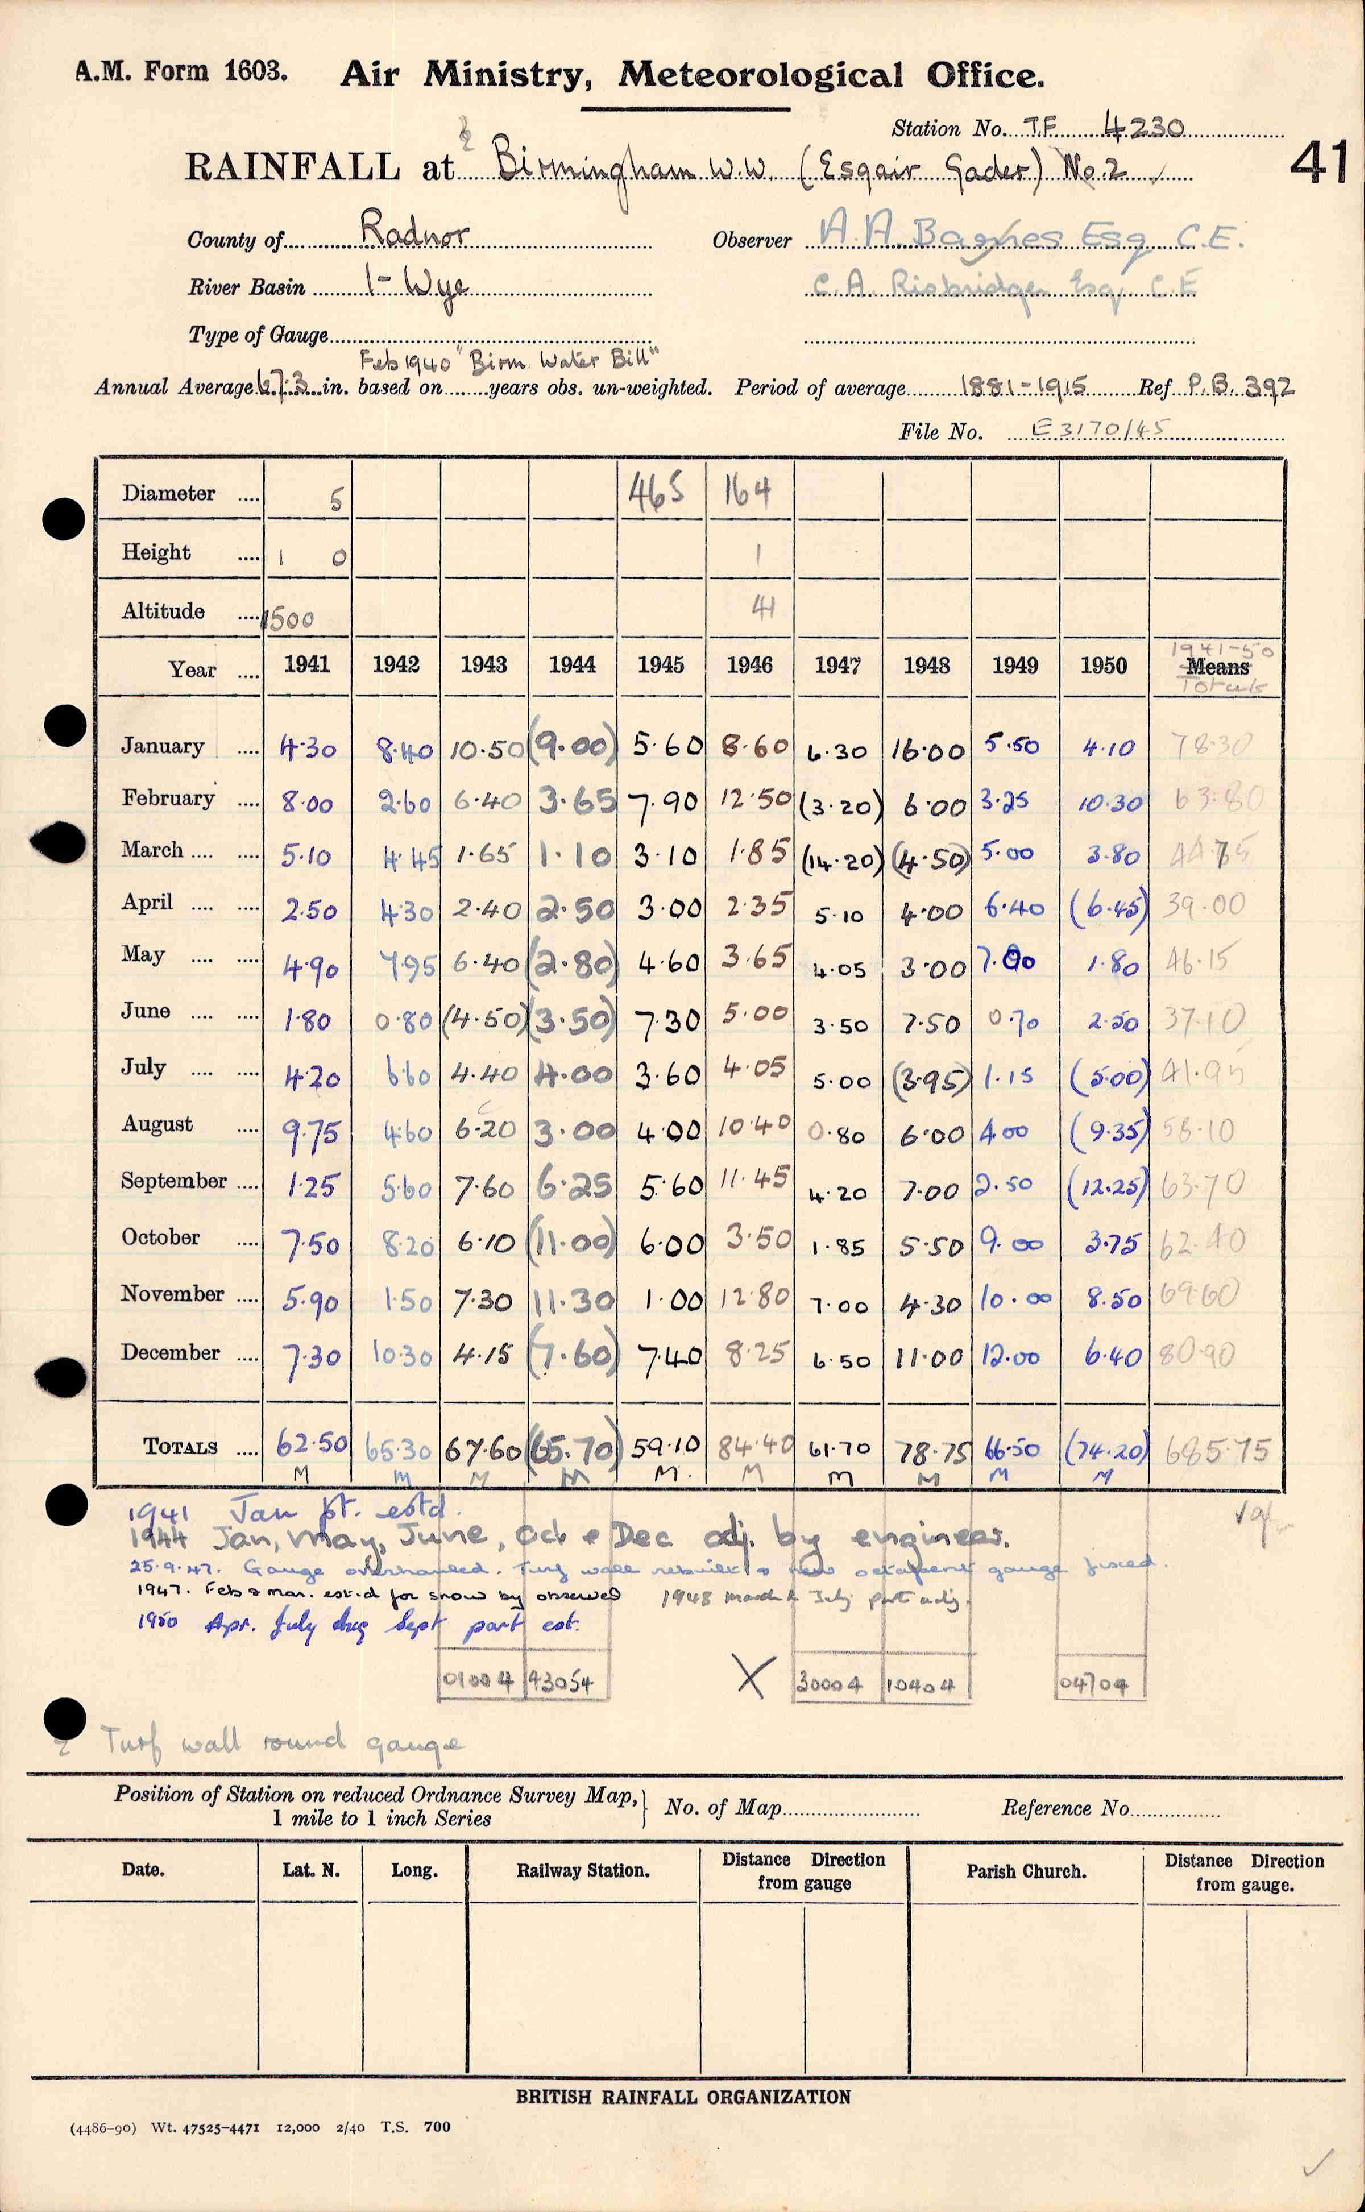 A.M. Form 1603. Air Ministry, Meteorological Office.
Station No. TF 4230
RAINFALL at Birmingham W.W. (Esgair Gader) No.2 41
County of Radnor Observer A. A. Barnes Esq C.E.
River Basin 1- Wye C.A. Risbridger Esq. C.E
Type of Gauge
Feb 1940 "Birm Water Bill"
Annual Average 67.3 in. based on years obs. un-weighted. Period of average 1881-1915 Ref P.B. 392
File No. E3170/45
Diameter 5 465 164
Height 1 0 1
Altitude 1500 41
Year 1941 1942 1943 1944 1945 1946 1947 1948 1949 1950 1941-50 Means Totals
January 4.30 8.40 10.50 (9.00) 5.60 8.60 6.30 16.00 5.50 4.10 78.30
February 8.00 2.60 6.40 3.65 7.90 12.50 (3.20) 6.00 3.25 10.30 63.80
March 5.10 4.45 1.65 1.10 3.10 1.85 (14.20) (4.50) 5.00 3.80 44.75
April 2.50 4.30 2.40 2.50 3.00 2.35 5.10 4.00 6.40 (6.45) 39.00
May 4.90 7.95 6.40 (2.80) 4.60 3.65 4.05 3.00 7.00 1.80 46.15
June 1.80 0.80 (4.50) (3.50) 7.30 5.00 3.50 7.50 0.70 2.50 37.10
July 4.20 6.60 4.40 4.00 3.60 4.05 5.00 (3.95) 1.15 (5.00) 41.95
August 9.75 4.60 6.20 3.00 4.00 10.40 0.80 6.00 4.00 (9.35) 58.10
September 1.25 5.60 7.60 6.25 5.60 11.45 4.20 7.00 2.50 (12.25) 63.70
October 7.50 8.20 6.10 (11.00) 6.00 3.50 1.85 5.50 9.00 3.75 62.40
November 5.90 1.50 7.30 11.30 1.00 12.80 7.00 4.30 10.00 8.50 69.60
December 7.30 10.30 4.15 (7.60) 7.40 8.25 6.50 11.00 12.00 6.40 80.90
TOTALS 62.50 65.30 67.60 (65.70) 59.10 84.40 61.70 78.75 66.50 (74.20) 685.75
M M M M M. M M M M M
1941 Jan pt. estd.
1944 Jan, May, June, Oct & Dec adj. by engineer.
25.9.47. Gauge overhauled. Turf wall rebuilt & new octapent gauge fixed.
1947. Feb & Mar. est.d for snow by observer 1948 March & July part adj.
1950 Apr. July Aug Sept part est.
01004 93054 X 30004 10404 04704
Turf wall round gauge
Position of Station on reduced Ordnance Survey Map, 1 mile to 1 inch Series No. of Map Reference No.
Date. Lat. N. Long. Railway Station. Distance Direction from gauge Parish Church. Distance Direction from gauge.
BRITISH RAINFALL ORGANIZATION
(4486-90) Wt. 47525-4471 12,000 2/40 T.S. 700